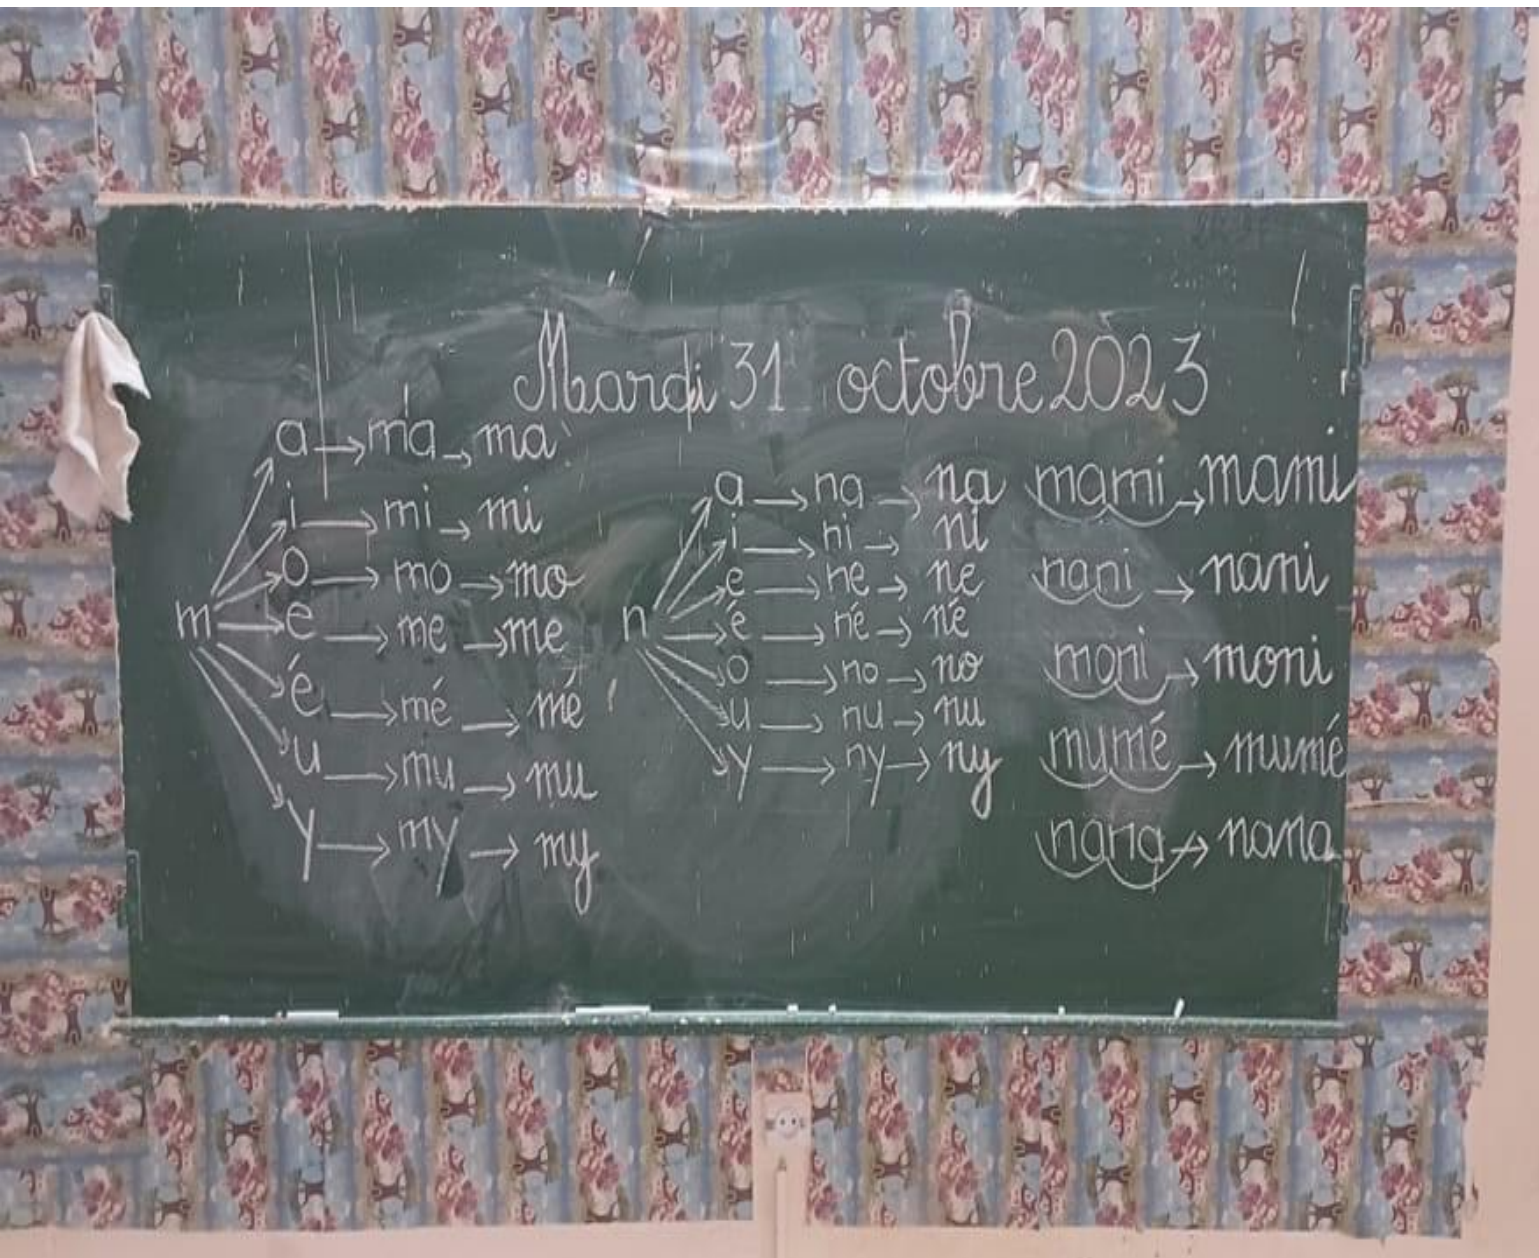 Mardi 31 octobre 2023
m
a → ma → ma
i → mi → mi
o → mo → mo
e → me → me
é → mé → mé
u → mu → mu
y → my → my
n
a → na → na
i → ni → ni
e → ne → ne
é → né → né
o → no → no
u → nu → nu
y → ny → ny
mami → mami
nani → nani
moni → moni
mumé → mumé
nana → nana